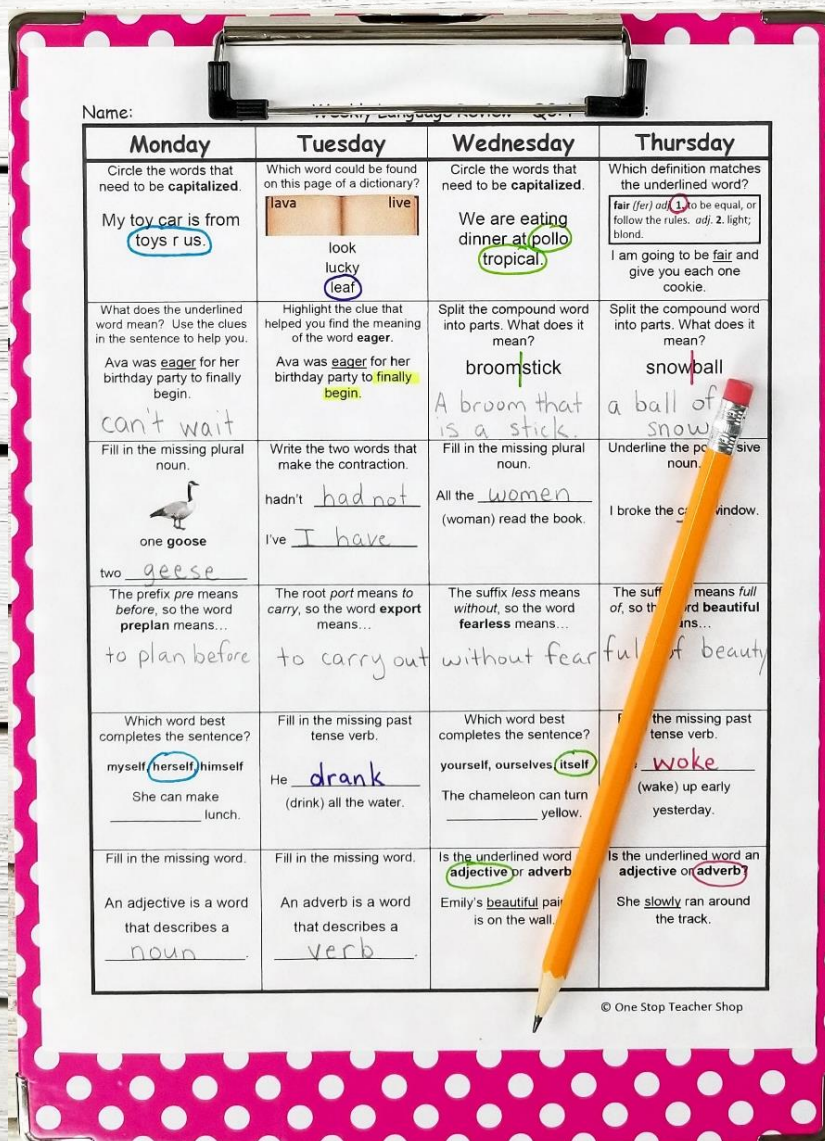 Name:
Weekly Language Review
Monday
Tuesday
Wednesday
Thursday
Circle the words that
need to be capitalized.
My toy car is from
toys r us.
Which word could be found
on this page of a dictionary?
lava live
look
lucky
leaf
Circle the words that
need to be capitalized.
We are eating
dinner at pollo
tropical.
Which definition matches
the underlined word?
fair (fer) adj. 1. to be equal, or
follow the rules. adj. 2. light;
blond.
I am going to be fair and
give you each one
cookie.
What does the underlined
word mean? Use the clues
in the sentence to help you.
Ava was eager for her
birthday party to finally
begin.
can't wait
Highlight the clue that
helped you find the meaning
of the word eager.
Ava was eager for her
birthday party to finally
begin.
Split the compound word
into parts. What does it
mean?
broomstick
A broom that
is a stick.
Split the compound word
into parts. What does it
mean?
snowball
a ball of
snow
Fill in the missing plural
noun.
one goose
two geese
Write the two words that
make the contraction.
hadn't had not
I've I have
Fill in the missing plural
noun.
All the women
(woman) read the book.
Underline the
noun.
I broke the window.
The prefix pre means
before, so the word
preplan means…
to plan before
The root port means to
carry, so the word export
means…
to carry out
The suffix less means
without, so the word
fearless means…
without fear
The means full
of, so beautiful
full of beauty
Which word best
completes the sentence?
myself, herself, himself
She can make
lunch.
Fill in the missing past
tense verb.
He drank
(drink) all the water.
Which word best
completes the sentence?
yourself, ourselves, itself
The chameleon can turn
yellow.
the missing past
tense verb.
woke
(wake) up early
yesterday.
Fill in the missing word.
An adjective is a word
that describes a
noun.
Fill in the missing word.
An adverb is a word
that describes a
verb.
Is the underlined word
adjective or adverb
Emily's beautiful
is on the wall.
Is the underlined word an
adjective or adverb?
She slowly ran around
the track.
© One Stop Teacher Shop